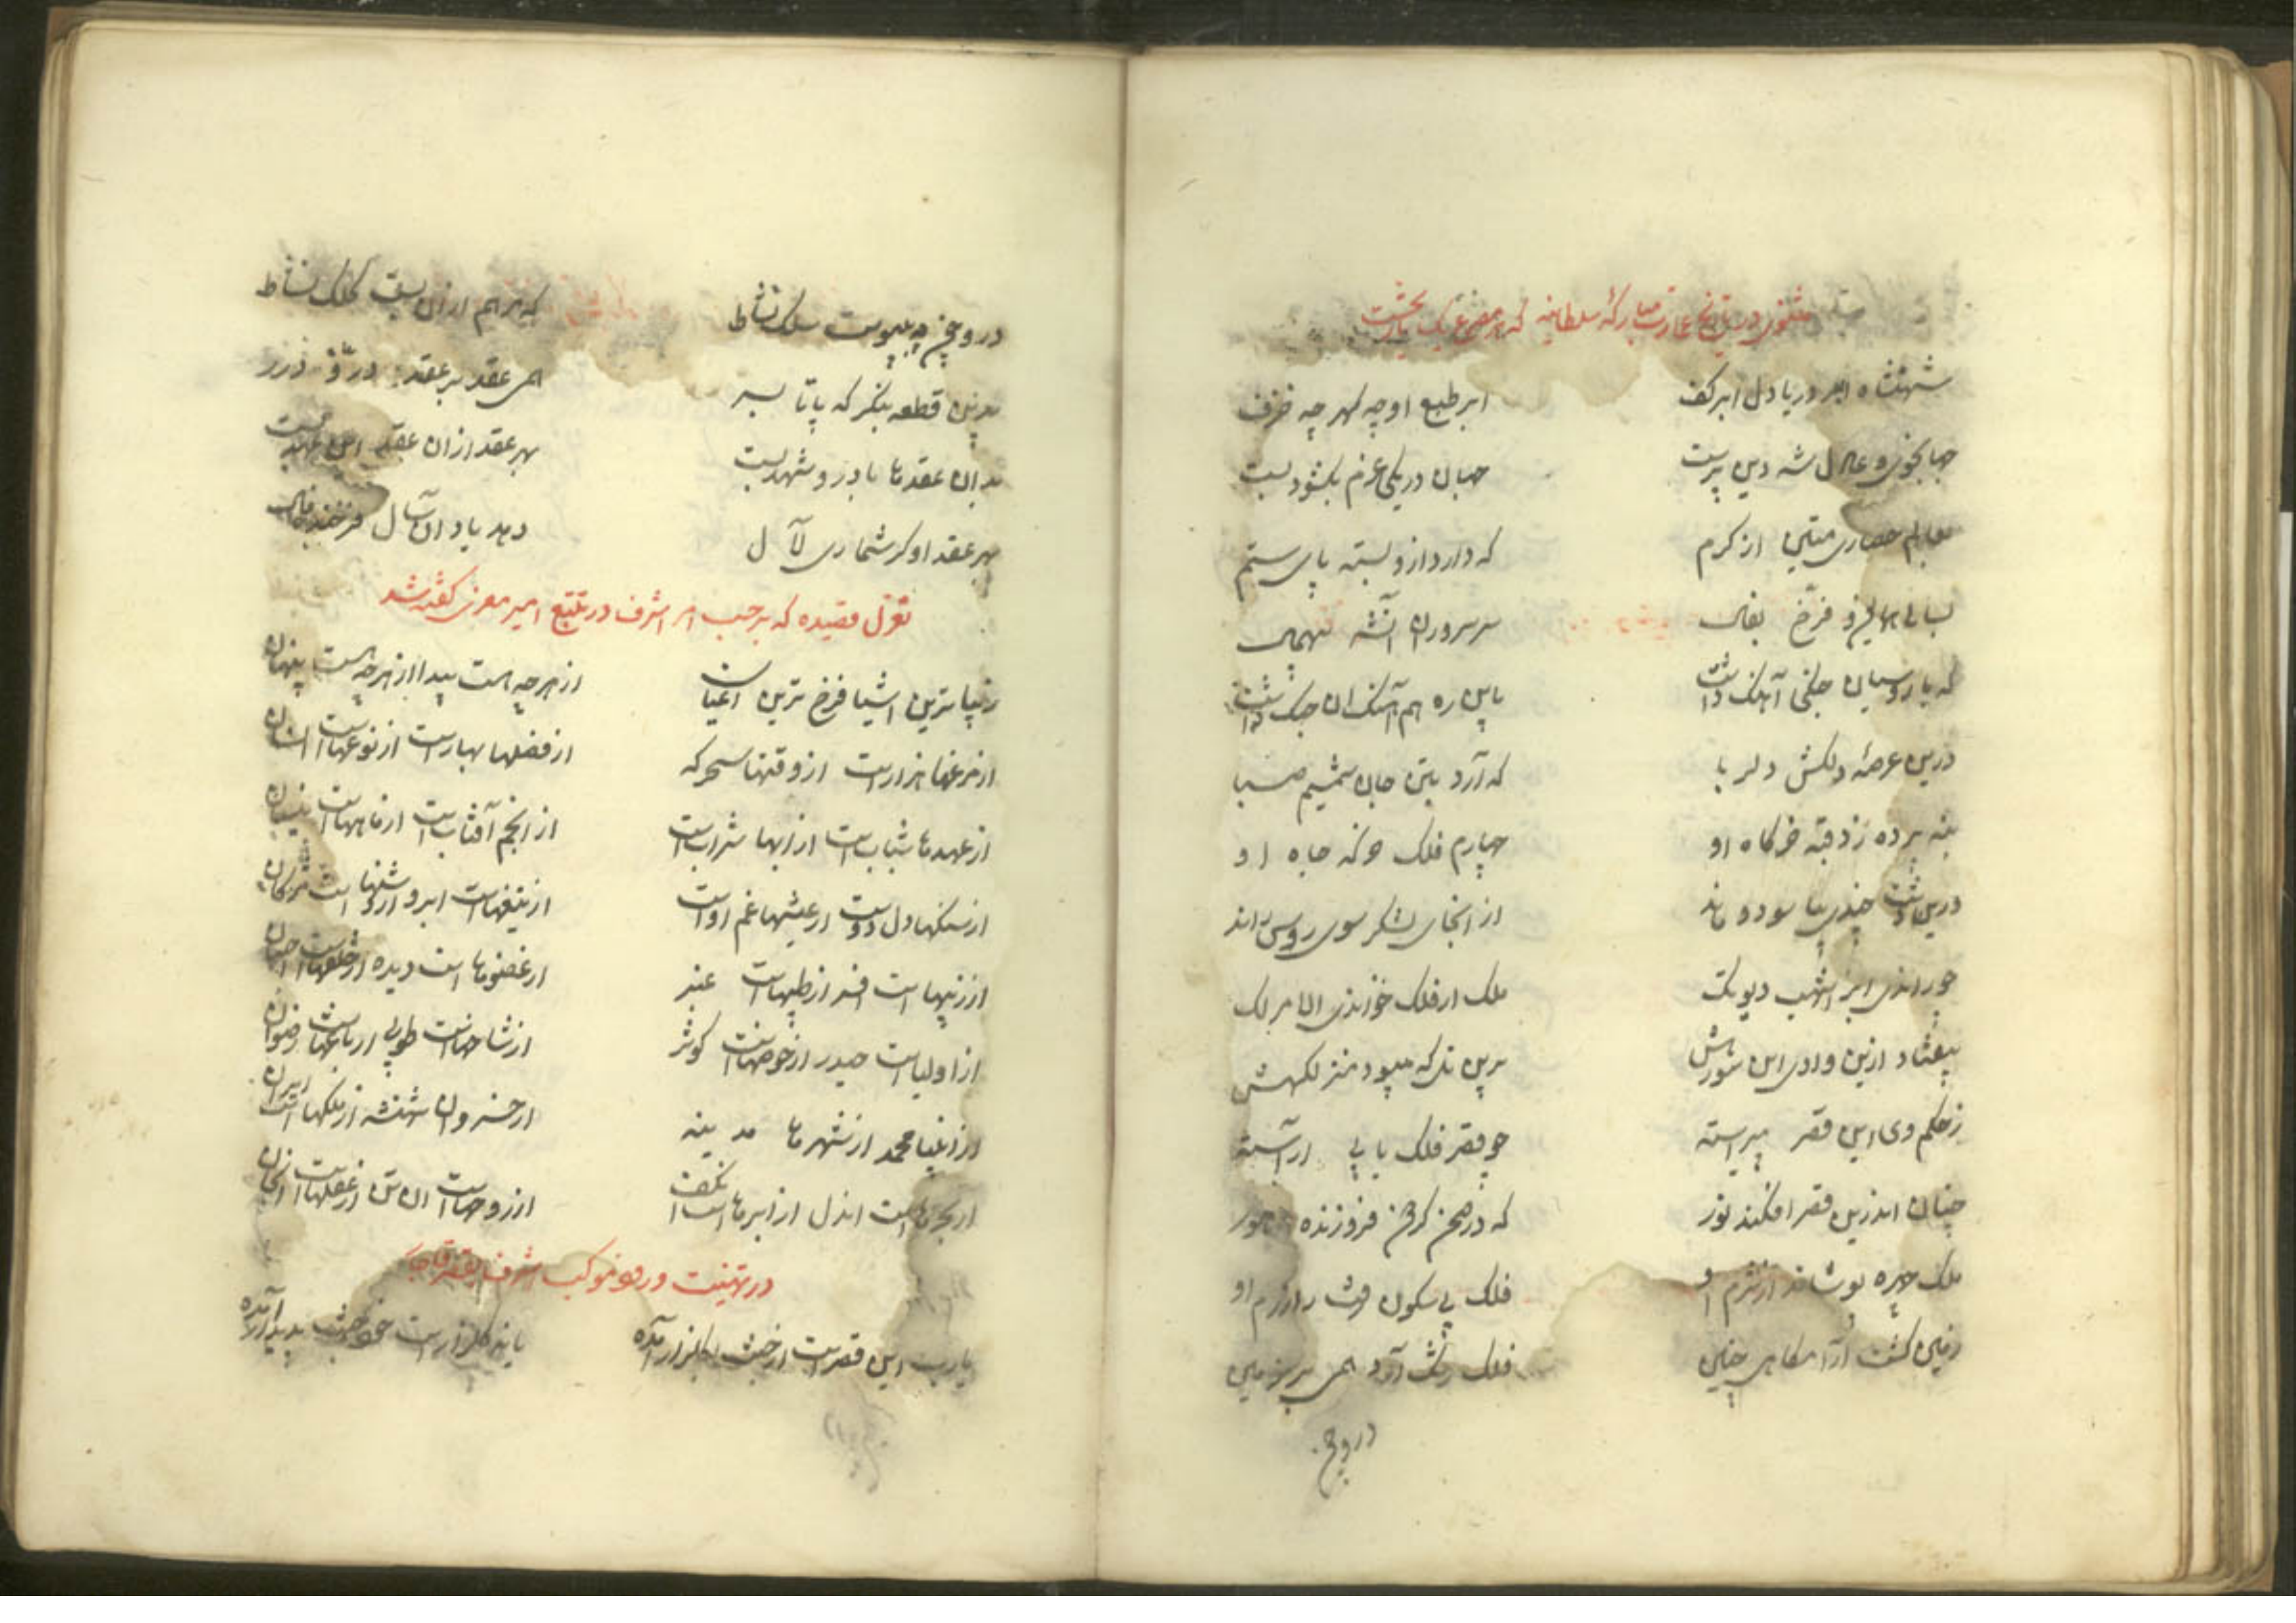 مثنوی در تاریخ عمارت مبارکهٔ سلطانیه که هر مصرع یک تاریخست
شهنشاه ابر و دریا دل ابر کف ابر طبع او چه گهر چه خزف
جهانجوی و عادل شه دین پرست جهان در یکی عزم بگشود و بست
بعالم حصاری متین از کرم که دارد ازو بسته پای ستم
بسالی همایون و فرخ بفال سر سروران آنشه بیهمال
که با روسیان جنگی آهنگ داشت باین ره هم آهنگ آن جنگ داشت
درین عرصهٔ دلکش دلربا که آرد بتن جان شمیم صبا
بنه پرده زد قبه خرگاه او چهارم فلک خرگه جاه او
درین دشت چندی بیاسود و ماند از انجای لشکر سوی روس راند
چو راندی ابر اشهب دیو تک ملک از فلک خواندی الامر لک
بیفتاد ازین وادی این شورش برین تل که میبود منزلگهش
ز حکم وی این قصر پیراسته چو قصر فلک یابی آراسته
چنان اندرین قصر افکند نور که در صحن گردون فروزنده هور
ملک چهره پوشاند از شرم او فلک بی سکون گشت از رزم او
زمین گشت آرامگاهی چنین فلک رشک آرد همی بر زمین
در وچن
در وچن چه پیوست سلک نشاط که هر هم از آن یافت کلک نشاط
بدین قطعه بنگر که پا تا بسر همی عقد بر عقد در و درر
بدان عقدها با در و شهد بست بهر عقد از آن عقد این عهد بست
بهر عقد او گر شماری لآل دهد یاد از آن سال فرخنده فال
تغزل قصیده که برحسب امر اشرف در تتبع امیر معزی گفته شد
زیباترین اشیا فرخ ترین اعیان از هر چه هست پیدا از هر چه هست پنهان
از مرغها هزارست از وقتها سحرگه از فصلها بهارست از نوعهاست انسان
از عهدها شبابست از آبها شرابست از انجم آفتابست از ماههاست نیسان
از سنگها دل دوست از عیشها غم اوست از تیغهاست ابرو از تیرهاست مژگان
از زیبهاست افسر از طیبهاست عنبر از عضوهاست دیده از خلقهاست احسان
از اولیاست حیدر از حوضهاست کوثر از شاخهاست طوبی از باغهاست رضوان
از انبیا محمد از شهرها مدینه از خسروان شهنشه از ملکهاست ایران
از بحرهاست آندل از ابرهاست آنکف از روحهاست آن تن از عقلهاست آنجان
در تهنیت ورود موکب اشرف بقصر قاجار
یا رب این قصرست از جنت بگلزار آمده یا نه گلزارست خود جنت پدیدار آمده